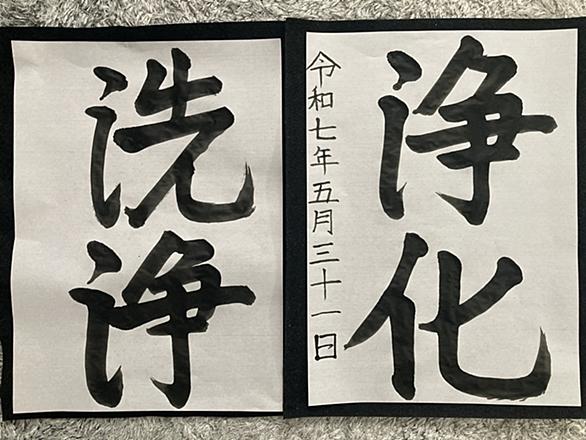 浄化
令和七年五月三十一日
洗浄